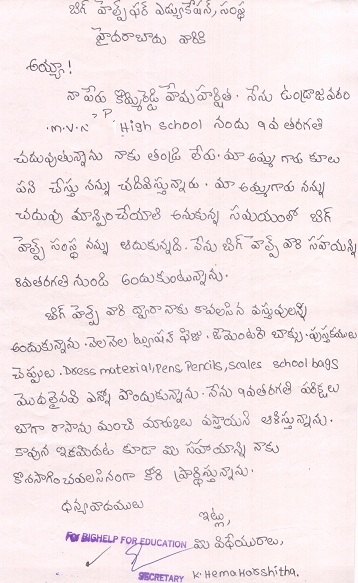 బిగ్ హెల్ప్ ఫర్ ఎడ్యుకేషన్, సంస్థ
హైదరాబాదు వారికి
అయ్యా!
నా పేరు కొమ్మిరెడ్డి హేమహర్షిత. నేను ఉండ్రాజవరం
.M.V.N P High school నందు 9వ తరగతి
చదువుతున్నాను నాకు తండ్రి లేరు. మా అమ్మ గారు కూలు
పని చేస్తు నన్ను చదివిస్తున్నారు. మా అమ్మగారు నన్ను
చదువు మాన్పించేయాలి అనుకున్న సమయంలో బిగ్
హెల్ప్ సంస్థ నన్ను ఆదుకున్నది. నేను బిగ్ హెల్ప్ వారి సహాయాన్ని
8వతరగతి నుండి అందుకుంటున్నాను.
బిగ్ హెల్ప్ వారి ద్వారా నాకు కావలసిన వస్తువులన్ని
అందుకున్నాను. నెలనెల ట్యూషన్ ఫీజు. జామెంటరి బాక్సు. పుస్తకములు
చెప్పులు. Dress material, Pens, Pencils, scales school bags
మొదలైనవి ఎన్నో పొందుకున్నాను. నేను 9వతరగతి పరీక్షలు
బాగా రాసాను మంచి మార్కులు వస్తాయని ఆశిస్తున్నాను.
కావున ఇకమీదట కూడా మీ సహాయాన్ని నాకు
కొనసాగించవలసినంగా కోరి ప్రార్థిస్తున్నాను.
ధన్యవాదములు
ఇట్లు,
For BIGHELP FOR EDUCATION మీ విధేయురాలు,
SECRETARY K.HemaHarshitha.